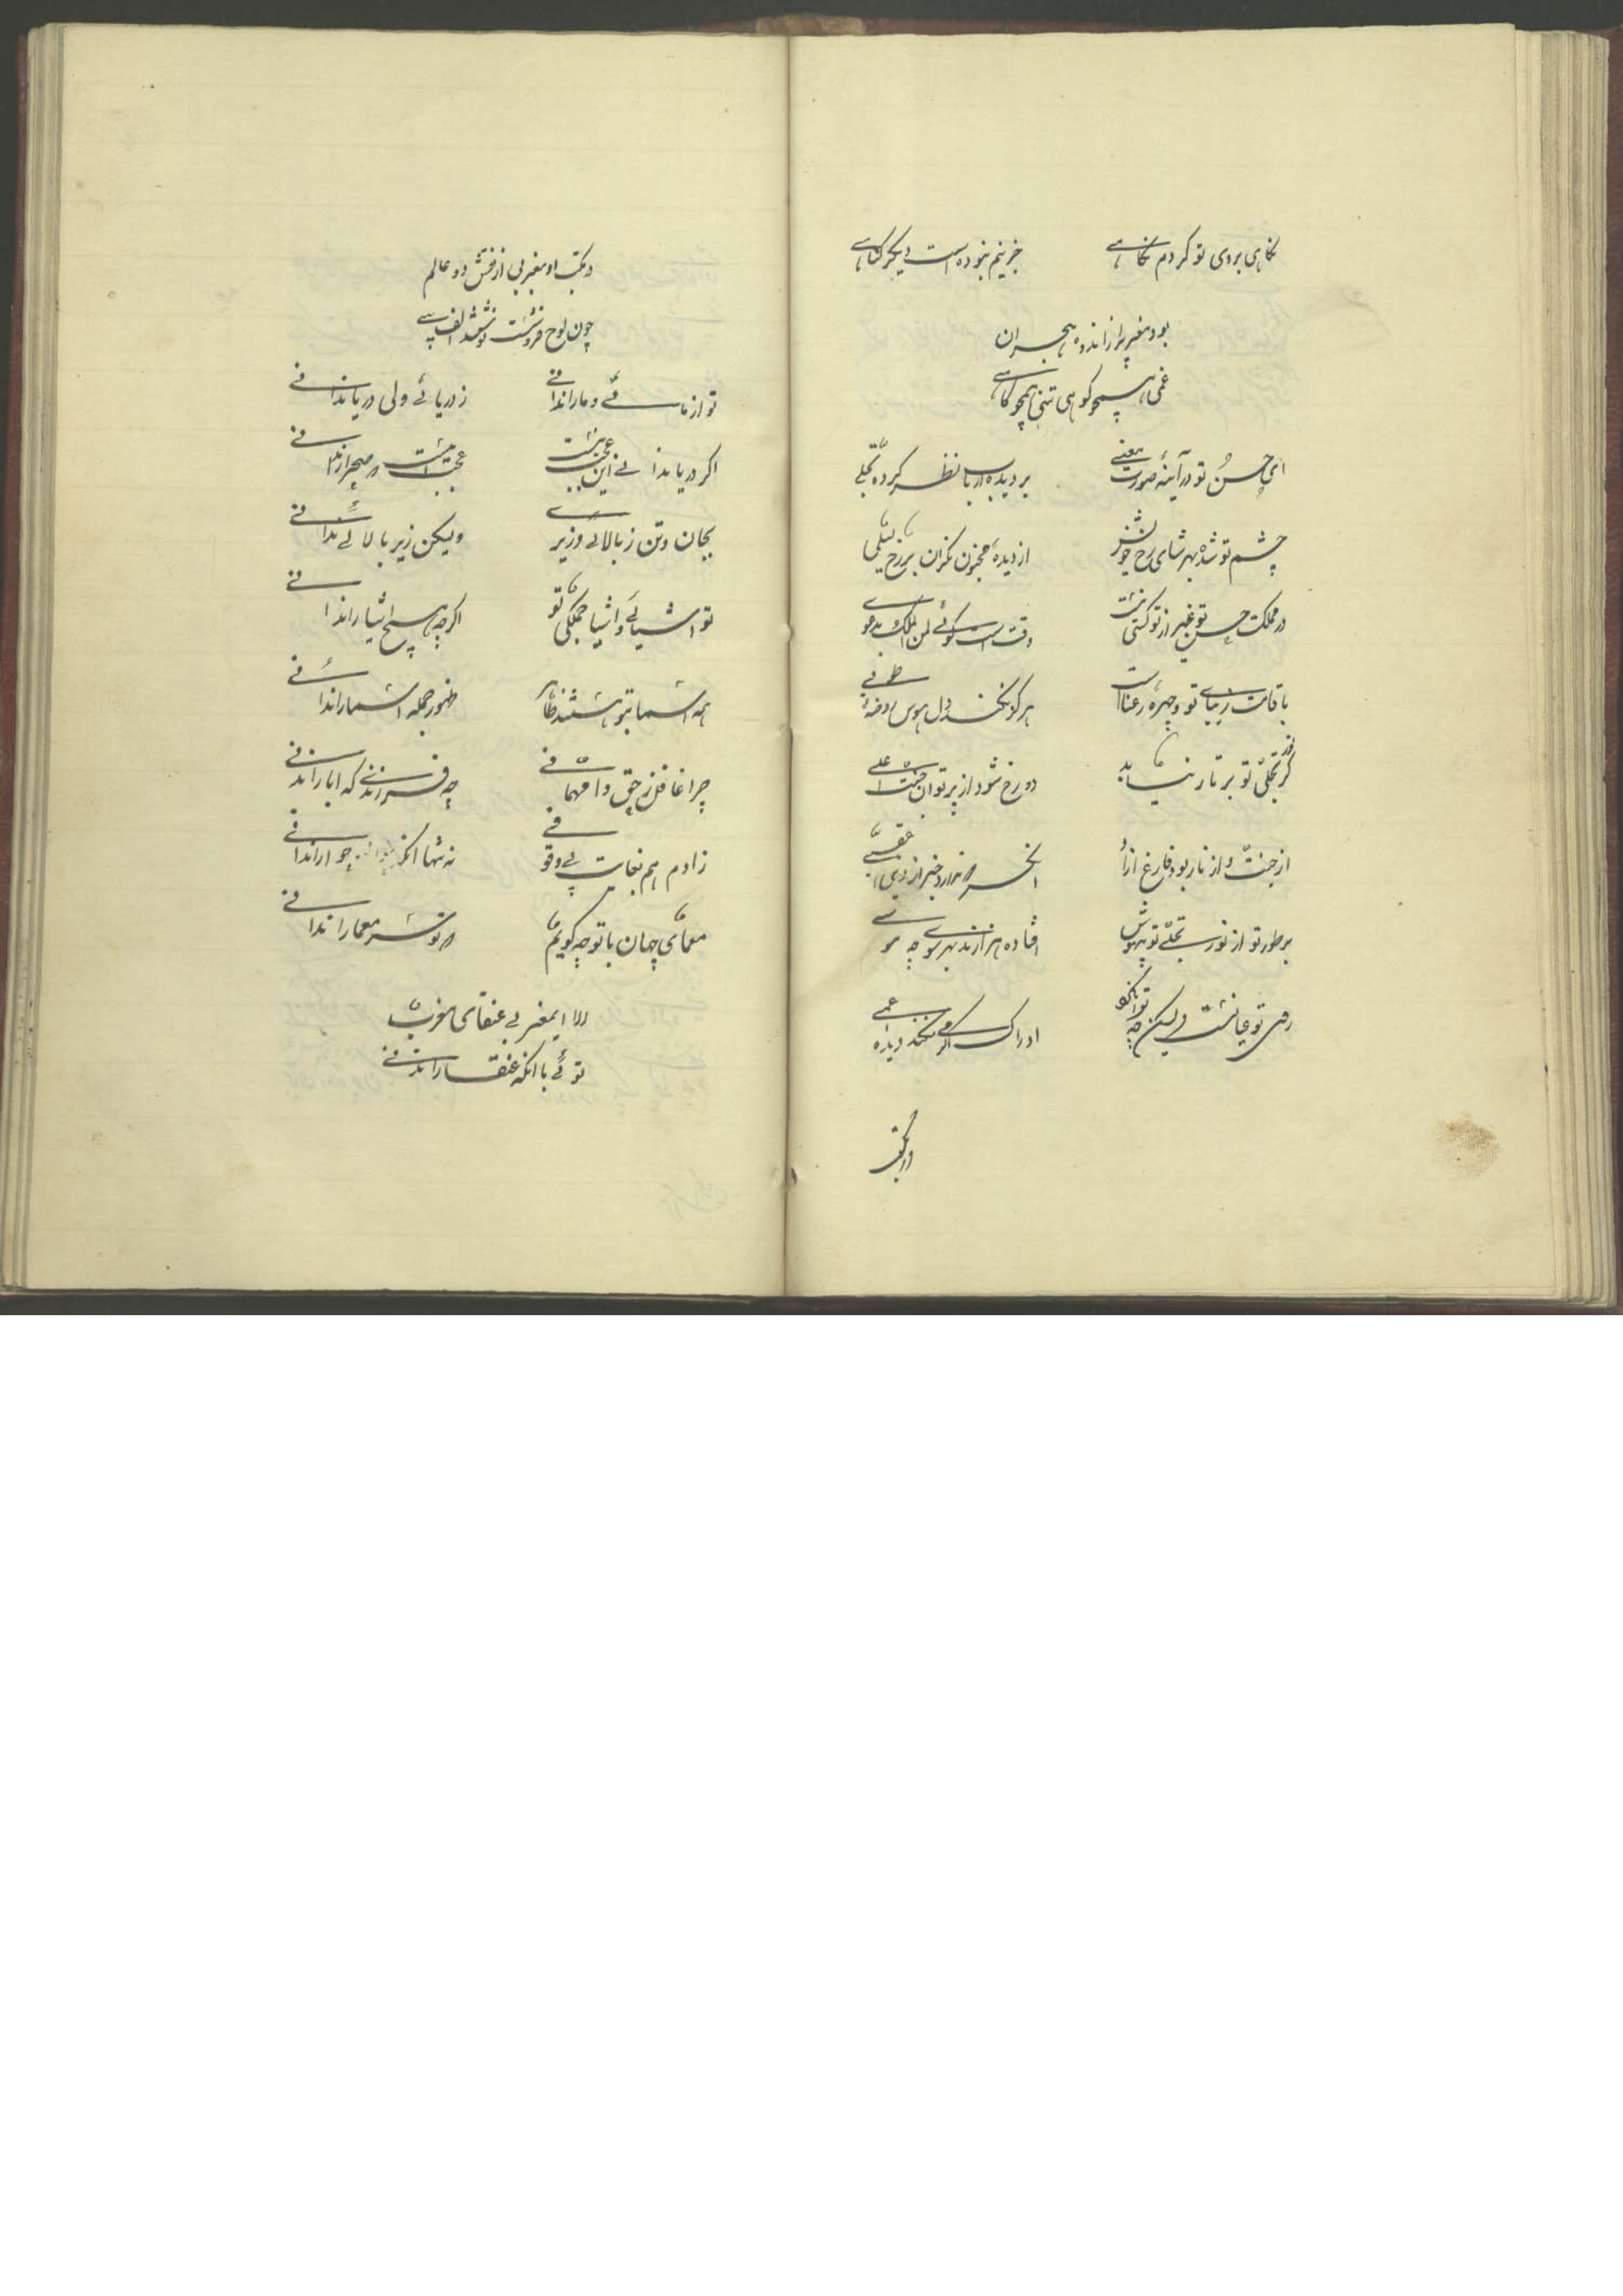 نکاهی بروی تو کردم نکاهے جز اینم نبوده است دیکر کناهے
بود مغربی را ز اندوه هجران
غمی همچو کوهی تنی همچو کاهے
ای حسن تو در آینهٔ صورت و معنے بر دیدهٔ ارباب نظر کرده تجلے
چشم تو شده بهر تماشای رخ خویش از دیدهٔ مجنون نکران بر رخ لیلی
در مملکت حسن تو غیر از تو کسی نیست وقت است که کوئے لمن الملک بدعوے
با قامت زیبای تو و چهرهٔ رعنات هرکو نکند دل هوس روضه و طوبے
کر نور تجلی تو بر نار بتابد دوزخ شود از پرتو آن جنت اعلے
از جنت و از نار بود فارغ و ازاد انکس که ندارد خبر از دنیی و عقبے
بر طور تو از نور تجلے تو بیهوش افتاده هزارند بهر سوے چو موسے
روی تو عیانست ولیکن چه توان کرد ادراک اکر مے نکند دیدهٔ اعمے
در مکتب
در مکتب او مغربی از نقش دو عالم
چون لوح فروشست نوشتند الف بے
تو از مائے و ما را ندانے ز دریائے ولی دریا ندانے
اکر دریا ندانے این عجب نیست عجب اینست که صحرا ندانے
بجان و تن ز بالائے و زیرے ولیکن زیر بالائے ندانے
تو اشیائے و اشیا جملکی تو اکرچه هیچ اشیا را ندانے
همه اسما بتو هستند ظاهر ظهور جمله اسما را ندانے
چرا غافل ز حق وامهاتے چه فرزندے که ابا را ندانے
ز ادم هم بغایت بے وقوفے نه تنها انکه حوا را ندانے
معمای جهان با تو چه کویم که تو سر معما را ندانے
الا ای مغربے عنقای مغرب
توئے با انکه عنقا را ندانے